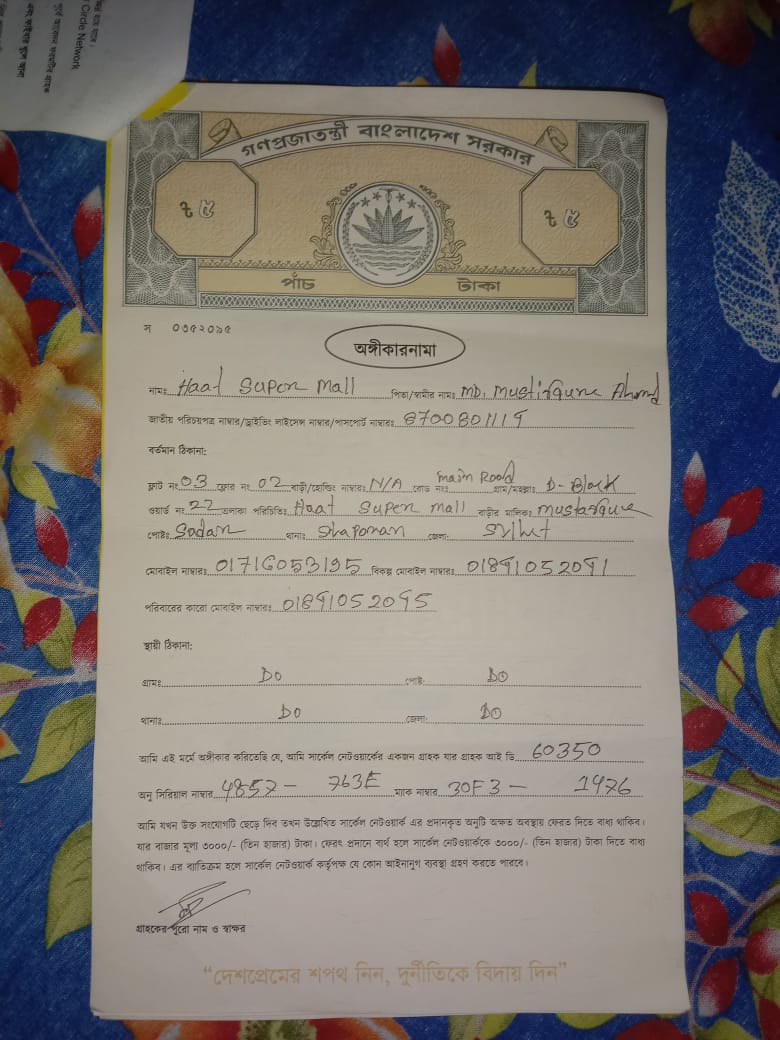 Circle Network
গণপ্রজাতন্ত্রী বাংলাদেশ সরকার
৳ ৫ ৳ ৫
পাঁচ টাকা
স ০৩৫২০৯৫
অঙ্গীকারনামা
নামঃ Haat Super Mall পিতা/স্বামীর নামঃ MD. Mustafqure Ahmed
জাতীয় পরিচয়পত্র নাম্বার/ড্রাইভিং লাইসেন্স নাম্বার/পাসপোর্ট নাম্বারঃ 8700801119
বর্তমান ঠিকানা:
ফ্লাট নং 03 ফ্লোর নং 02 বাড়ী/হোল্ডিং নাম্বারঃ N/A রোড নংঃ main Road গ্রাম/মহল্লাঃ D-Block
ওয়ার্ড নং 22 এলাকা পরিচিতিঃ Haat Super mall বাড়ীর মালিকঃ
পোষ্টঃ Sadar থানাঃ Shaporan জেলা: Sylhet
মোবাইল নাম্বারঃ 01716053195 বিকল্প মোবাইল নাম্বারঃ 01891052091
পরিবারের কারো মোবাইল নাম্বারঃ 01891052095
স্থায়ী ঠিকানা:
গ্রামঃ DO পোষ্ট: DO
থানাঃ DO জেলা: DO
আমি এই মর্মে অঙ্গীকার করিতেছি যে, আমি সার্কেল নেটওয়ার্কের একজন গ্রাহক যার গ্রাহক আই ডি 60350
অনু সিরিয়াল নাম্বার 4857- 763E ম্যাক নাম্বার 30F3- 1976
আমি যখন উক্ত সংযোগটি ছেড়ে দিব তখন উল্লেখিত সার্কেল নেটওয়ার্ক এর প্রদানকৃত অনুটি অক্ষত অবস্থায় ফেরত দিতে বাধ্য থাকিব।
যার বাজার মূল্য ৩০০০/- (তিন হাজার) টাকা। ফেরৎ প্রদানে ব্যর্থ হলে সার্কেল নেটওয়ার্ককে ৩০০০/- (তিন হাজার) টাকা দিতে বাধ্য
থাকিব। এর ব্যতিক্রম হলে সার্কেল নেটওয়ার্ক কর্তৃপক্ষ যে কোন আইনানুগ ব্যবস্থা গ্রহণ করতে পারবে।
গ্রাহকের পুরো নাম ও স্বাক্ষর
“দেশপ্রেমের শপথ নিন, দুর্নীতিকে বিদায় দিন”